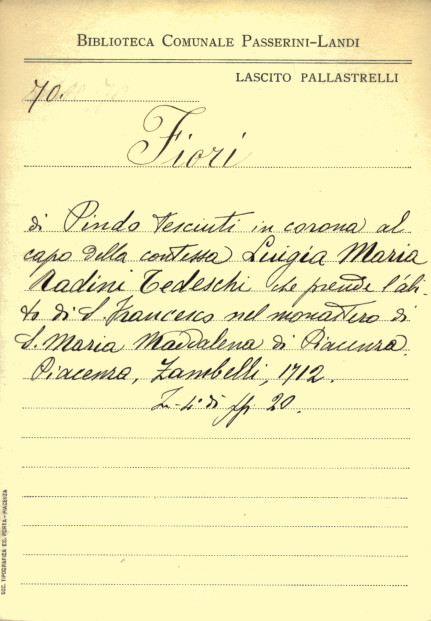 BIBLIOTECA COMUNALE PASSERINI-LANDI
LASCITO PALLASTRELLI
70.
Fiori
di Pindo tesciuti in corona al
capo della contessa Luigia Maria
Radini Tedeschi che prende l'abi-
to di S. Francesco nel monastero di
S. Maria Maddalena di Piacenza.
Piacenza, Zambelli, 1712.
In-4° di pp. 20.
SOC. TIPOGRAFICA ED. PORTA-PIACENZA